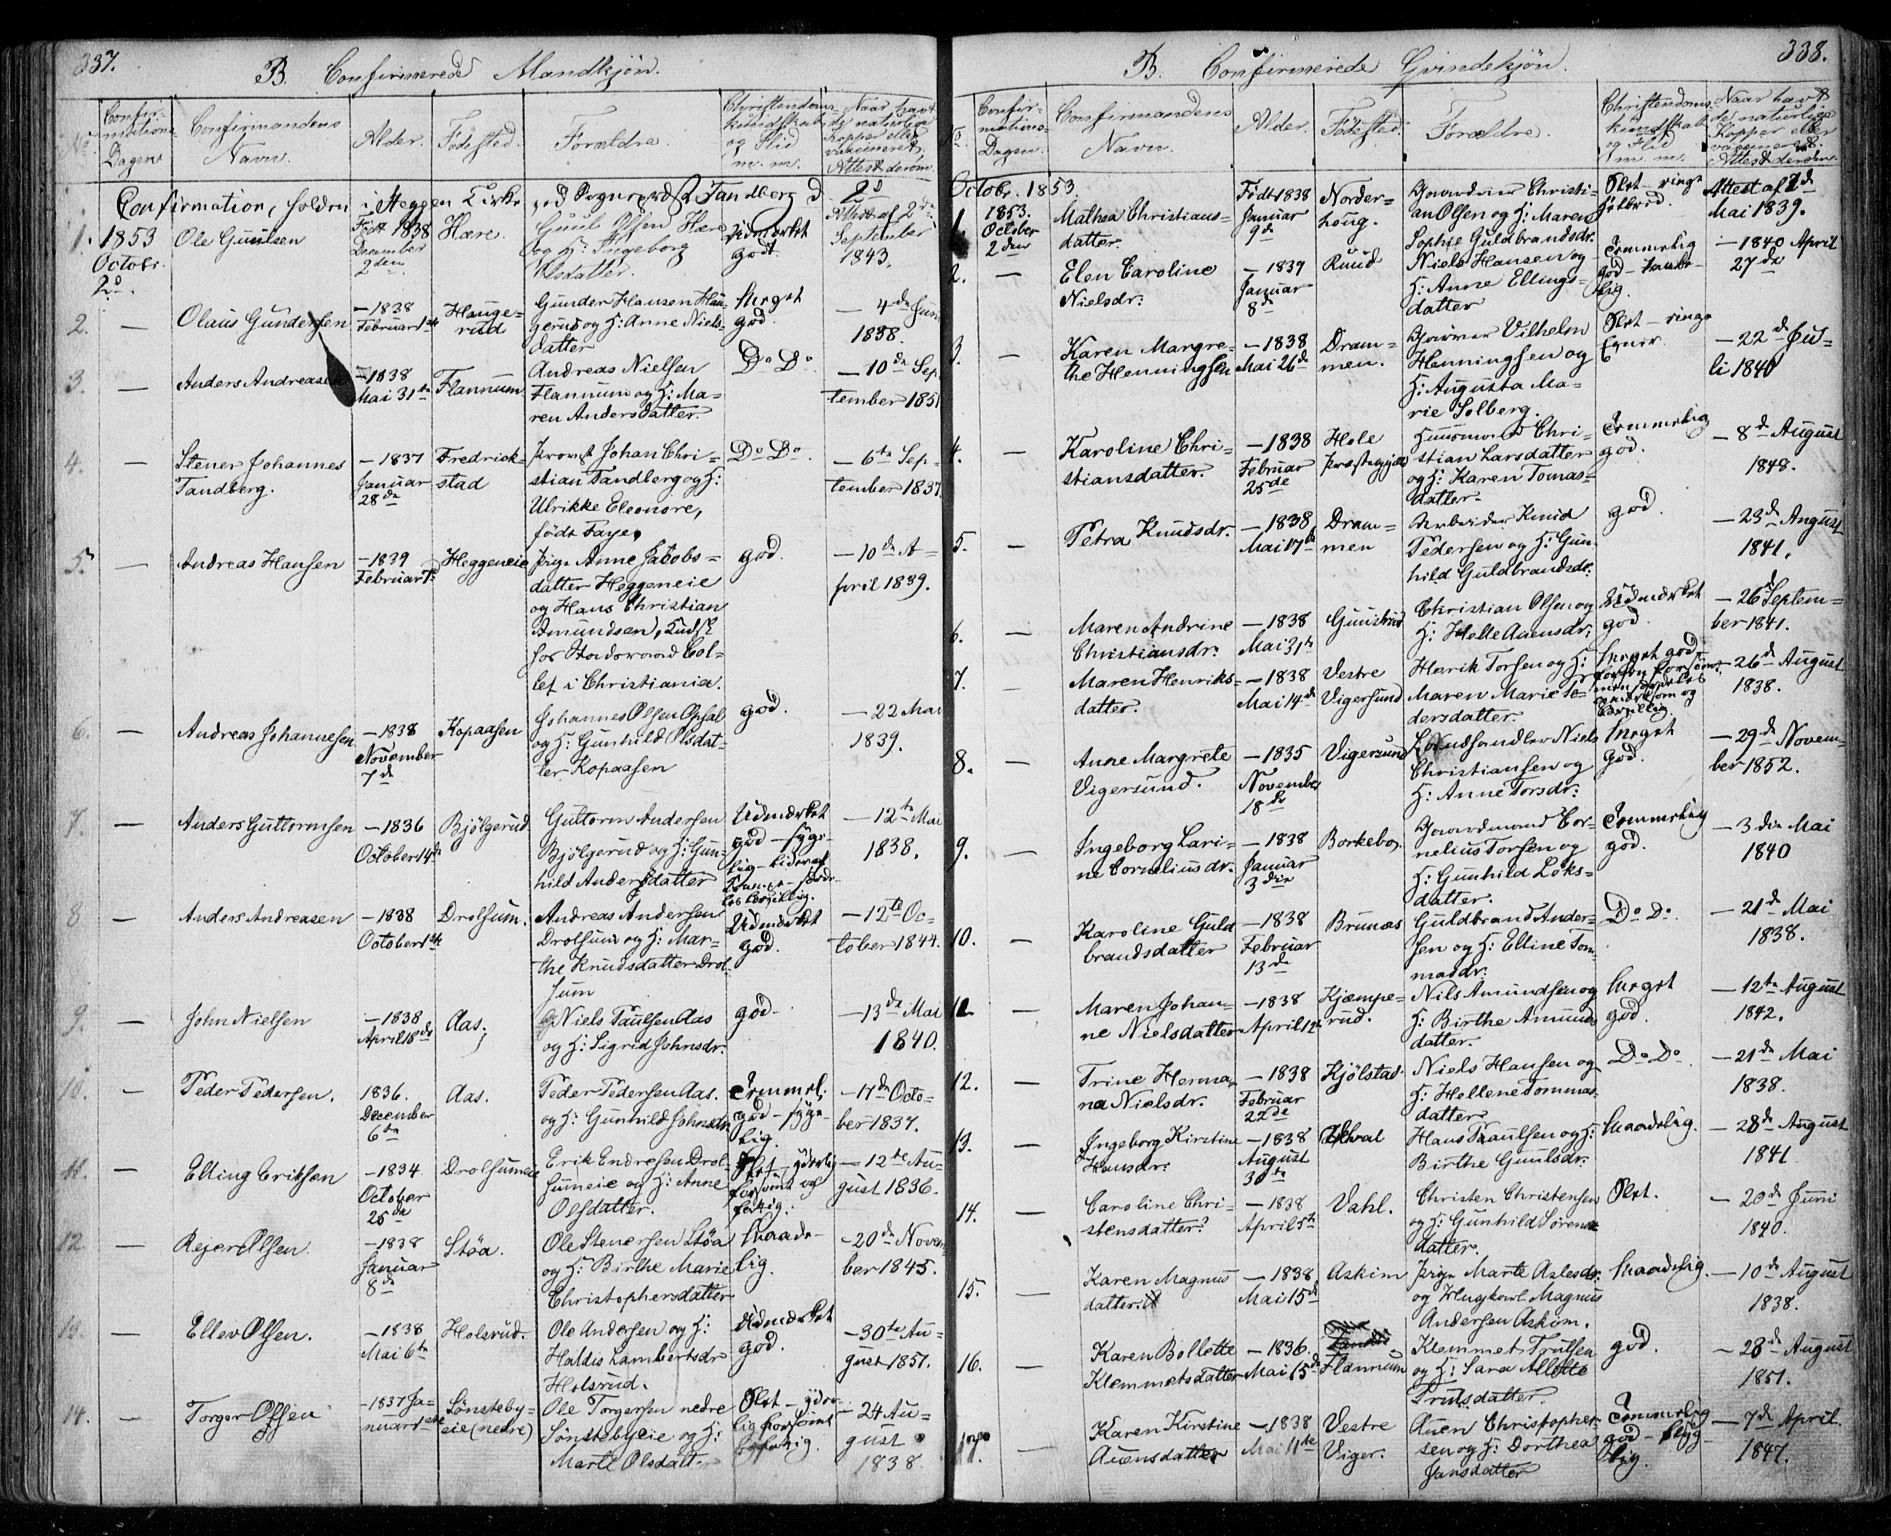 337.
B. Confirmerede Mandkjøn.
No
Confirmations Dagen
Confirmandens Navn.
Alder.
Fødested.
Forældre.
Christendomskundskab og Flid m. m.
Naar havt de naturlige Kopper eller vaccineret. Attest derom
Confirmation, holden i Heggen Kirke
Tandberg d. 2d
1. 1853 Octobr. 2d.
Ole Guulsen
Født 1838 December 2den
Hære.
Guul Olsen Hære og H: Ingeborg Olsdatter.
Udmærket godt.
Attest af 2den September 1843.
2. —
Olaus Gundersen
— 1838 Februar 1ste
Haugerud
Gunder Hansen Haugerud og H: Anne Nielsdatter
Meget god.
— 4de Juni 1838.
3. —
Anders Andreasen
— 1838 Mai 31te
Flannum
Andreas Nielsen Flannum og H: Maren Andersdatter.
Do Do
— 10de September 1851
4. —
Stener Johannes Tandberg.
— 1837 Januar 28de
Fredrickstad
Provst Johan Christian Tandberg og H: Ulrikke Eleonore, født Faye,
Do Do.
— 6te September 1837.
5. —
Andreas Hansen
— 1839 Februar 7de
Heggeneie
Pige Anne Jacobsdatter Heggeneie og Hans Christian Amundsen, Kudsk hos Stadsraad Collet i Christiania.
god.
— 10de April 1839.
6. —
Andreas Johannesen
— 1838 November 7de
Kopaasen
Johannes Olsen Opsal og H: Gunhild Olsdatter Kopaasen
god.
— 22 Mai 1839.
7. —
Anders Guttormsen
— 1836 October 14de
Bjölgerud
Guttorm Andersen Bjölgerud og H: Gunhild Andersdatter
Udmærket god — sygelig —
— 12te Mai 1838.
8 —
Anders Andreasen
— 1838 October 1ste
Drolsum.
Andreas Andersen Drolsum og H: Marthe Knudsdatter Drolsum
Udmærket god.
— 12te October 1844.
9. —
John Nielsen
— 1838 April 18de
Aas;
Niels Paulsen Aas og H: Sigrid Johnsdr.
god.
— 13de Mai 1840.
10. —
Peder Pedersen.
1836. December 6te
Aas.
Peder Pedersen Aas. og H: Gunhild Johnsdtr
Temmel: god — sygelig.
— 17de October 1837.
11. —
Elling Eriksen
— 1834 October 25de
Drolsumeie
Erik Endresen Drolsumeie og H: Anne Olsdatter.
Slet — yderlig forsømt og fattig.
— 12te August 1836.
12. —
Rejer Olsen.
— 1838 Januar 8de
Støa.
Ole Stenersen Støa og H: Birthe Marie Christophersdatter
Maadelig.
— 20de November 1845.
13. —
Ellev Olsen.
— 1838 Mai 6te
Holsrud.
Ole Andersen og H: Haldis Lambertsdr Holsrud.
Udmærket god.
— 30te August 1851.
14. —
Torger Olsen
— 1837 Januar 1ste
Sønstebyeie (nedre)
Ole Torgersen nedre Sønstebyeie og H: Marte Olsdatt
Slet — yderlig forsømt og fattig.
— 24 August 1838
338.
B. Confirmerede Qvindekjøn.
No.
Confirmations-Dagen.
Confirmandens Navn.
Alder.
Fødested.
Forældre.
Christendomskundskab og Flid m. m.
Naar havt de naturlige Kopper eller vaccineret. Attest derom.
Octobr. 1853.
1. 1853. October 2den
Mathea Christiansdatter.
Født 1838 Januar 9de
Norderhoug.
Gaardeier Christian Olsen og H: Maren Sophie Guldbrandsdr.
Slet — ringe
Attest af 2de Mai 1839.
2. —
Elen Caroline Nielsdr:
— 1839 Januar 8de
Ruud
Niels Hansen og H: Anne Ellingsdatter
Temmelig god —
— 1840 April 27de
3. —
Karen Margrethe Henningsen
— 1838 Mai 26de
Drammen.
Vilhelm Henningsen og H: Augusta Marie Solberg.
Slet — ringe Evner.
— 22de Juli 1840
4. —
Karoline Christiansdatter.
— 1838 Februar 25de
Hole Præstegjæld
Huusmand Christian Larsdatter og H: Karen Tomasdatter.
Temmelig god.
— 8de August 1848.
5. —
Petra Knudsdr.
— 1838 Mai 17de
Drammen
Arbeider Knud Pedersen og H: Gunhild Guldbrandsdr:
god.
— 23de August 1841.
6. —
Maren Andrine Christiansdr:
— 1838 Mai 31te
Christian Olsen og H: Helle Auensdr;
Udmærket god.
— 26de September 1841.
7. —
Maren Henriksdatter.
— 1838 Mai 14de
Vestre Vigersund
Henrik Torsen og H: Maren Marie Pedersdatter.
Meget god
— 26de August 1838.
8. —
Anne Margrete Vigersund.
— 1835 November 18de
Vigersund
Landhandler Niels Christiansen og H: Anne Torsdr:
Meget god.
— 29de November 1852.
9. —
Ingeborg Larine Corneliusdr.
— 1838 Januar 3die
Borkebo.
Gaardmand Cornelius Torsen og H: Gunhild Loksdatter.
Temmelig god.
— 3die Mai 1840
10. —
Karoline Guldbrandsdatter
— 1838 Februar 13de
Brunæs
Guldbrand Andersen og H: Elline Tommasdr:
Do Do.
— 21de Mai 1838.
11. —
Maren Johanne Nielsdatter
— 1838 April 12te
Kjæmperud.
Nils Amundsen og H: Birthe Amundsdatter.
Meget god.
— 12te August 1842.
12. —
Trine Hermana Nielsdr.
— 1838 Februar 22de
Kjölstad
Niels Hansen og H: Hellene Tommasdatter
Do Do
— 21de Mai 1838.
13. —
Ingeborg Kirstine Hansdr:
— 1838 August 30te
Hans Paulsen og H: Birthe Guulsdr.
Maadelig.
— 28de August 1841.
14. —
Caroline Christensdatter.
— 1838 April 5te
Vahl.
Christen Christensen og H: Gunhild Sørensdatter.
Slet.
— 20de Juni 1840.
15. —
Karen Magnusdatter.
— 1838 Mai 15de
Askim
Pige Marte Aslesdr. og Ungkarl Magnus Andersen Askim.
Maadelig.
— 10de August 1838.
16. —
Karen Bollette Klemmetsdatter
— 1836 Mai 15de
Flannum
Klemmet Trulsen og H: Sara Allette Trulsdatter
god.
— 28de August 1851.
17. —
Karen Kirstine Auensdatter
— 1838 Mai 11te
Vestre Viger.
Auen Christophersen og H: Dorthea Jansdatter
Temmelig god —
— 7de April 1847.